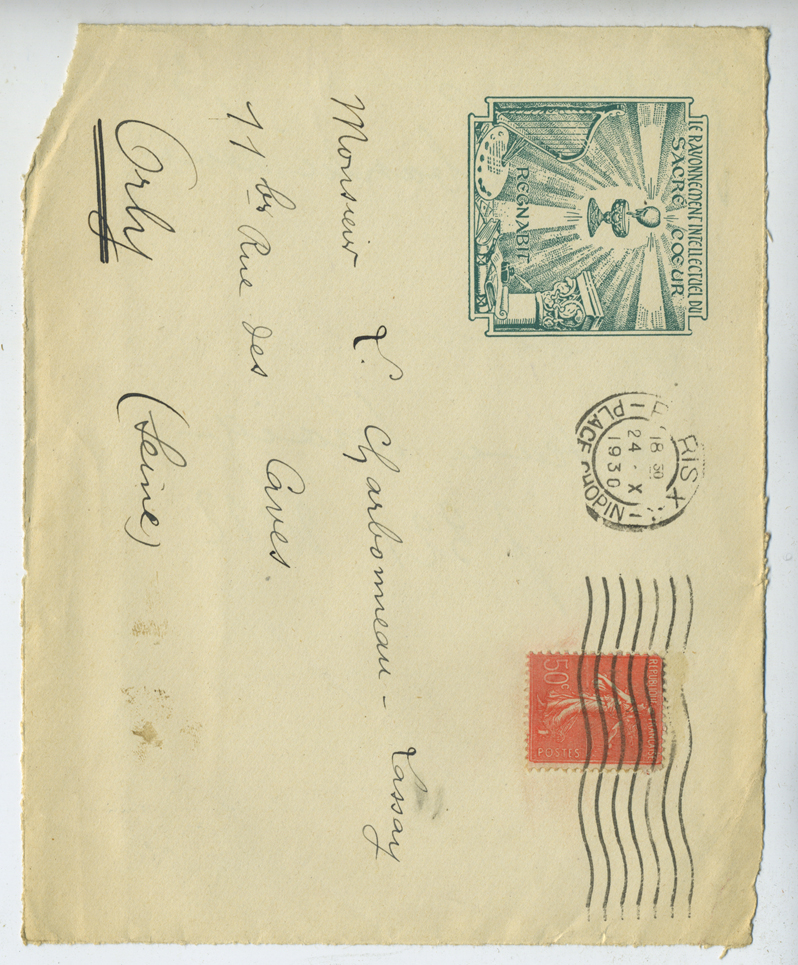 LE RAYONNEMENT INTELLECTUEL DU
SACRÉ CŒUR
REGNABIT
RIS X
18 30
24 · X
1930
PLACE CHOPIN
RÉPUBLIQUE FRANÇAISE
50c
POSTES
Monsieur L. Charbonneau-Lassay
11 bis Rue des Caves
Orly (Seine)